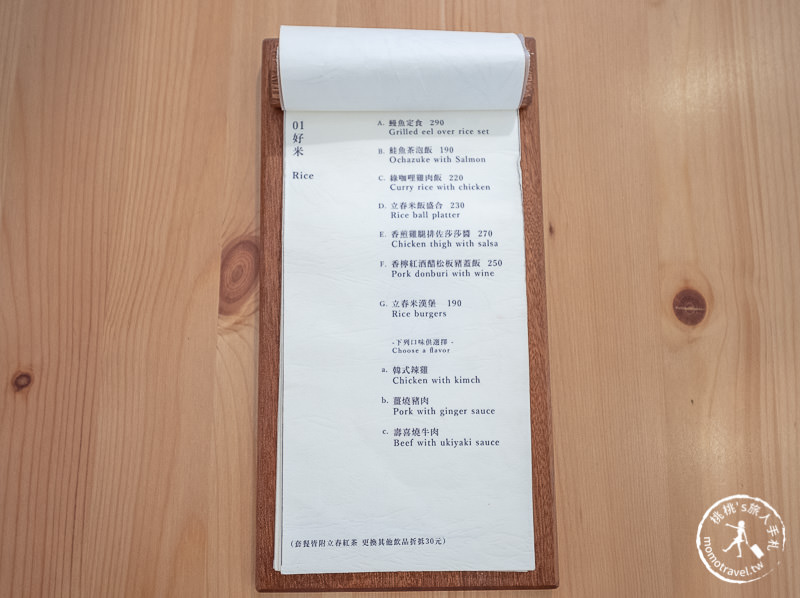 01
好
米
Rice
A. 鰻魚定食 290
Grilled eel over rice set
B. 鮭魚茶泡飯 190
Ochazuke with Salmon
C. 綠咖哩雞肉飯 220
Curry rice with chicken
D. 立春米飯盛合 230
Rice ball platter
E. 香煎雞腿排佐莎莎醬 270
Chicken thigh with salsa
F. 香檸紅酒醋松板豬蓋飯 250
Pork donburi with wine
G. 立春米漢堡 190
Rice burgers
-下列口味供選擇 -
Choose a flavor
a. 韓式辣雞
Chicken with kimch
b. 薑燒豬肉
Pork with ginger sauce
c. 壽喜燒牛肉
Beef with ukiyaki sauce
(套餐皆附立春紅茶 更換其他飲品折抵30元)
桃桃's旅人手札
momotravel.tw